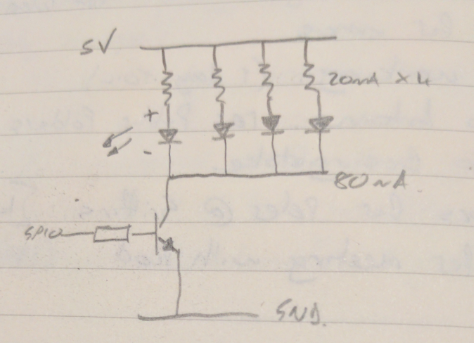 5V
20mA x4
+
-
80mA.
GPIO
GND.